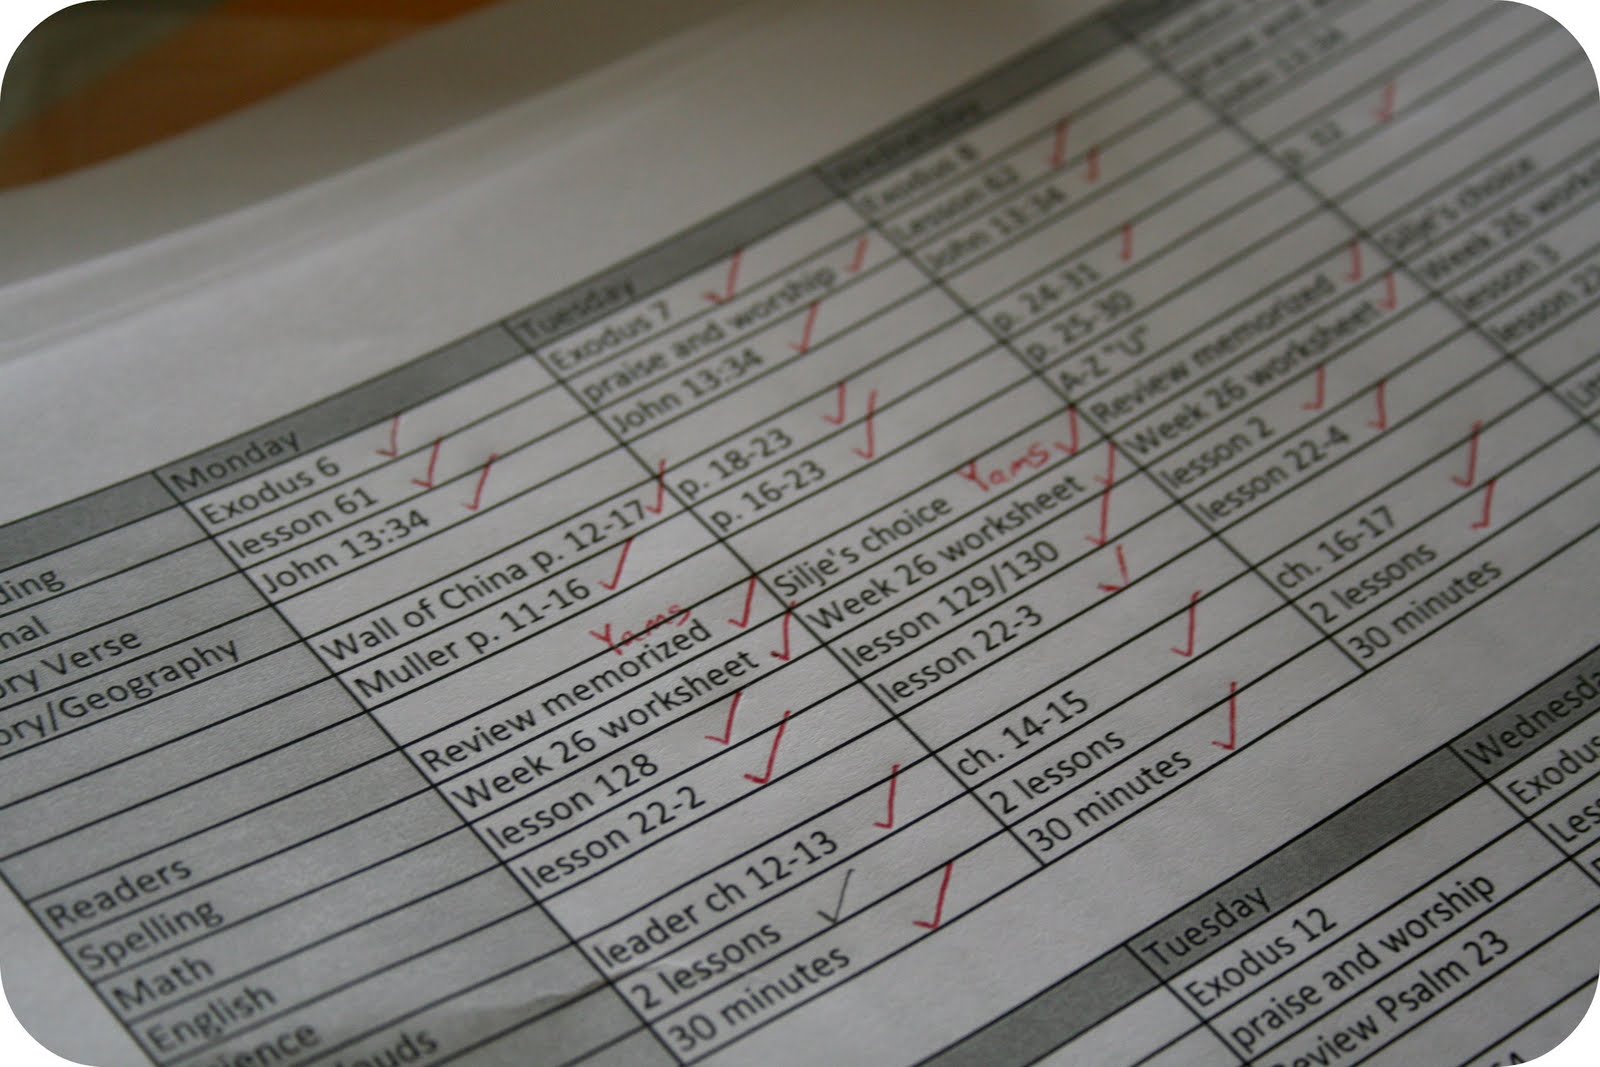 Monday
Tuesday
Wednesday
Exodus 6
Exodus 7
Exodus 8
lesson 61
praise and worship
Lesson 62
John 13:34
John 13:34
John 13:34
ory Verse
ory/Geography
Wall of China p. 12-17
p. 18-23
p. 24-31
p. 32
Muller p. 11-16
p. 16-23
p. 25-30
A-Z "U"
Readers
Review memorized
Yams
Silje's choice
Yams
Review memorized
Silje's choice
Spelling
Week 26 worksheet
Week 26 worksheet
Week 26 worksheet
Week 26 works
Math
lesson 128
lesson 129/130
lesson 2
lesson 3
English
lesson 22-2
lesson 22-3
lesson 22-4
lesson 22
ience
louds
leader ch 12-13
ch. 14-15
ch. 16-17
2 lessons
2 lessons
2 lessons
30 minutes
30 minutes
30 minutes
Tuesday
Wednesda
Exodus 12
Exodus
praise and worship
Les
Review Psalm 23